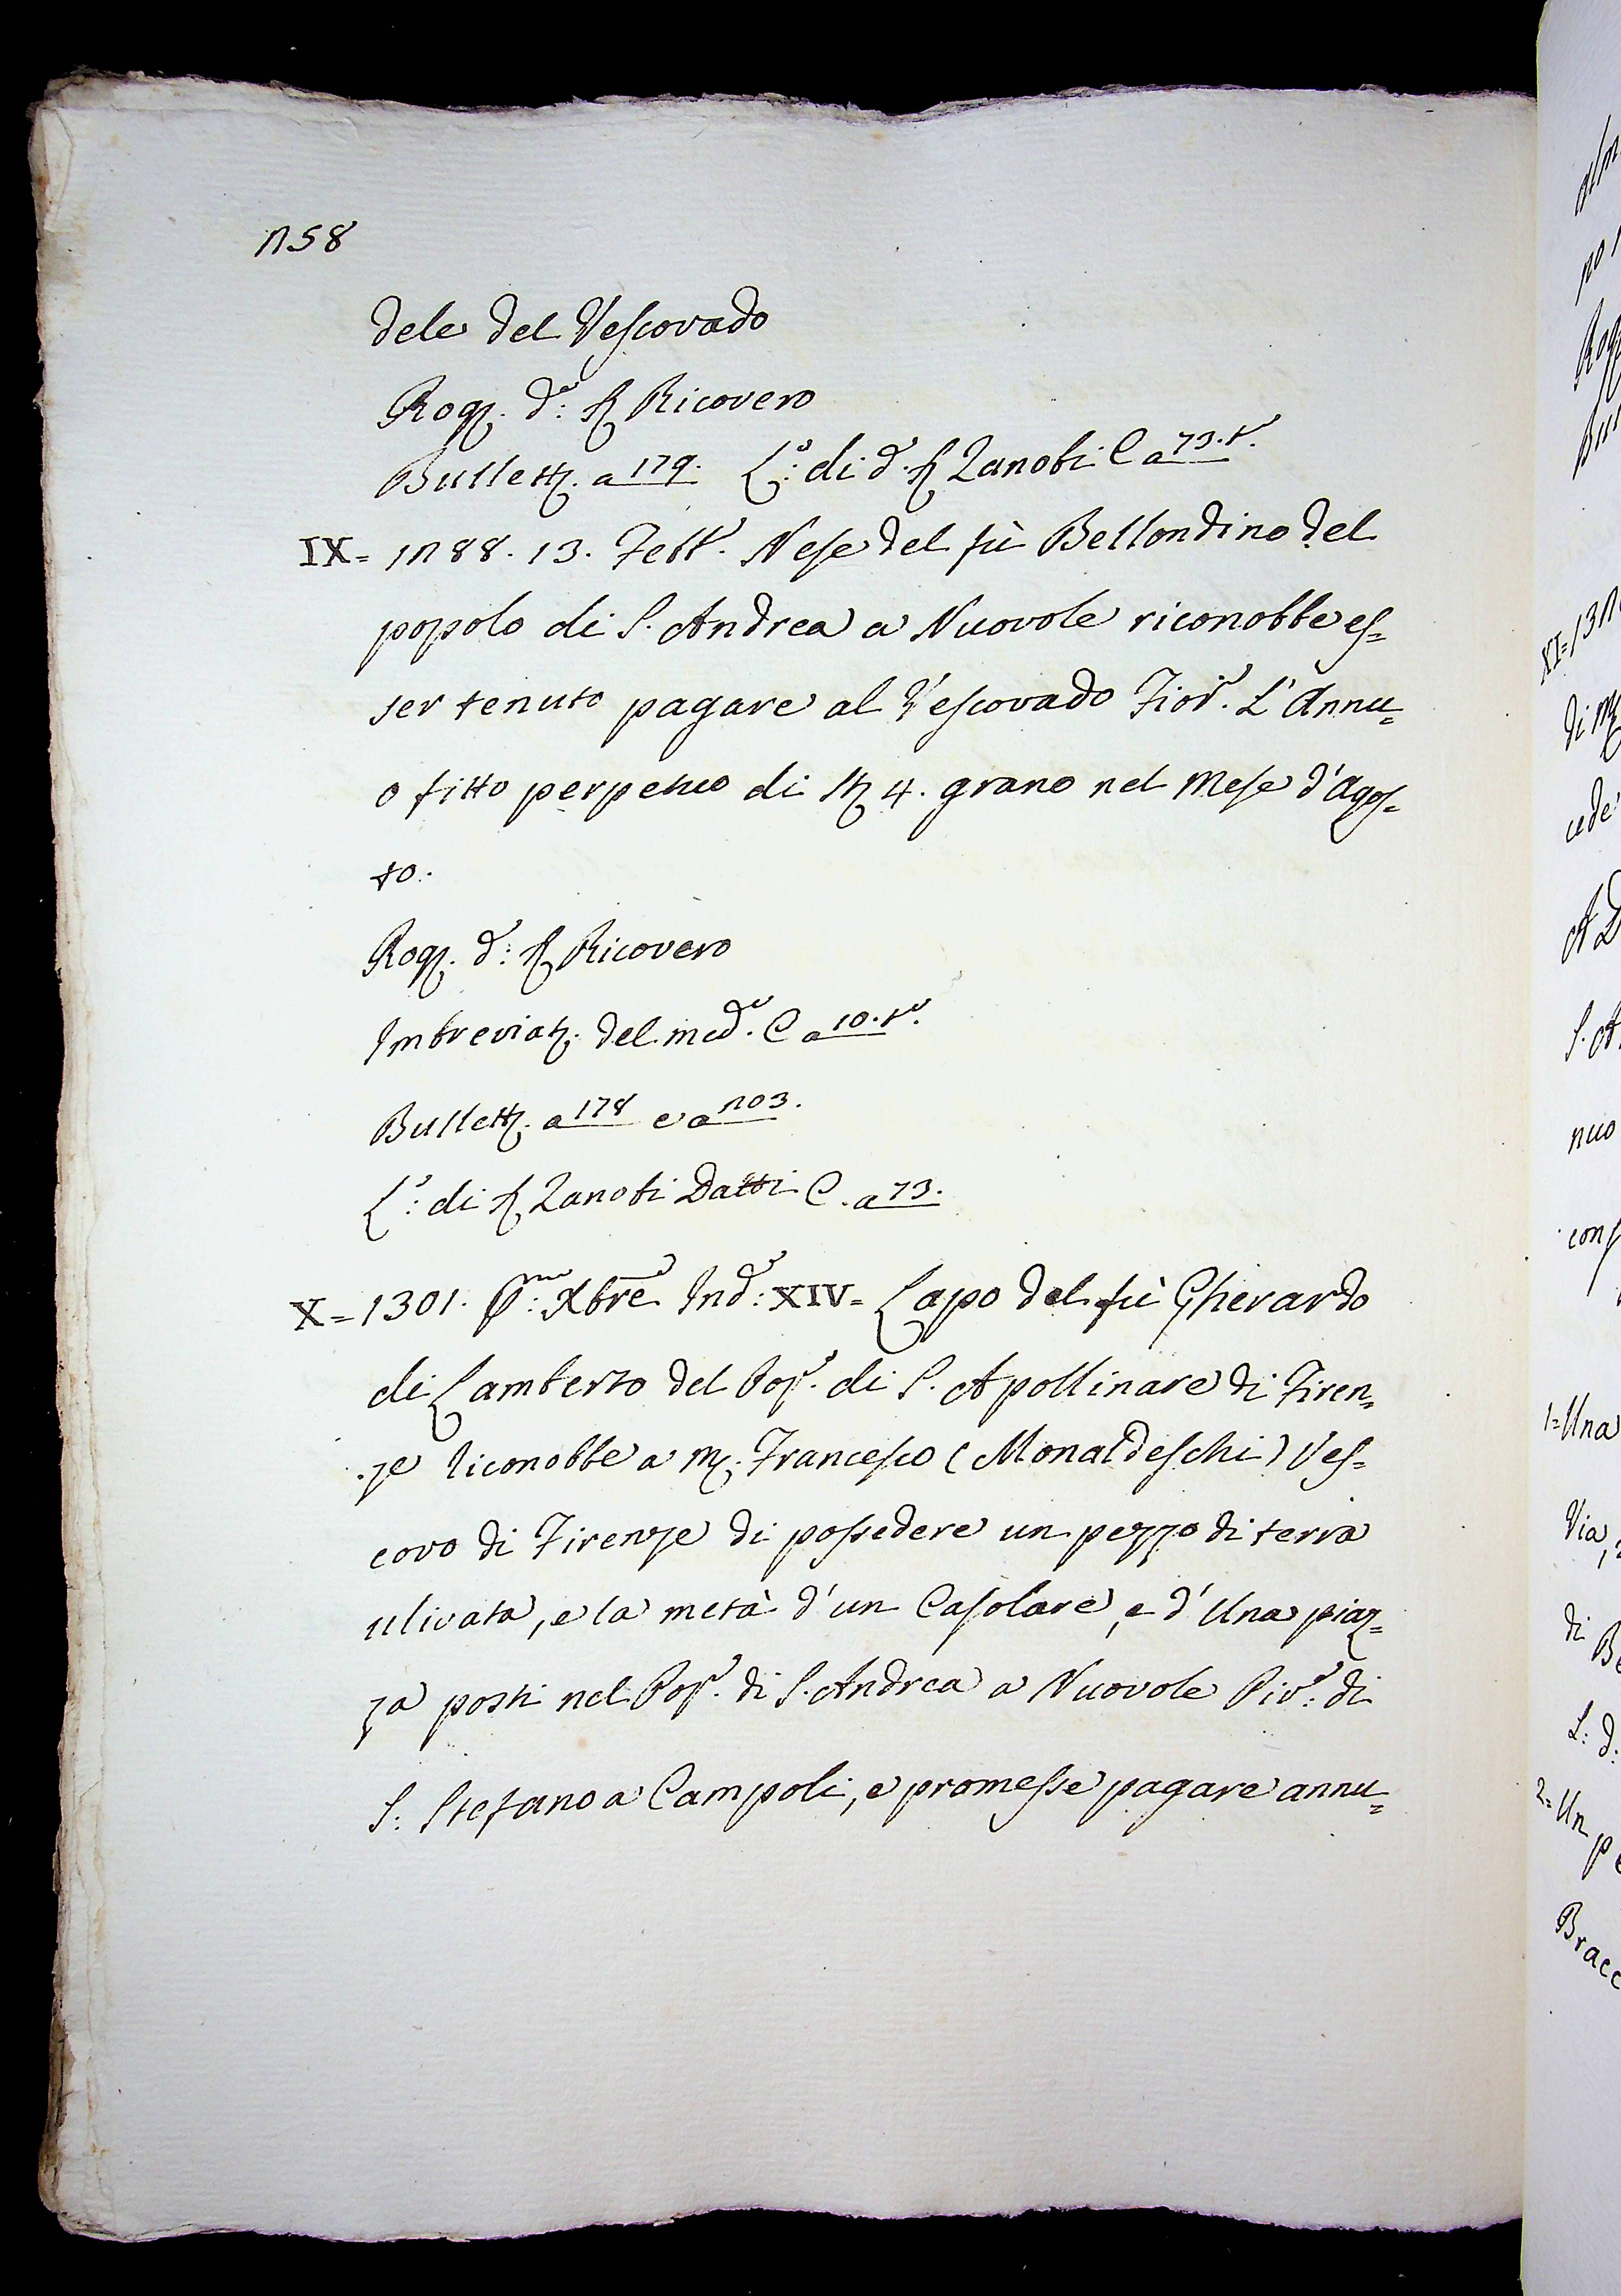 258
dele del Vescovado
Rog. d.º: Ser Ricovero
Bullett. a 179. L.º: di d. Ser Zanobi C a 73. tº.
IX= 1288. 13. Febbº. Nese del fù Bellondino del
popolo di S. Andrea a Nuovole riconobbe es=
ser tenuto pagare al Vescovado Fior.º L'Annu=
o fitto perpetuo di St. 4. grano nel Mese d'Agos=
to.
Rog. d.º: Ser Ricovero
Imbreviat. del medº. C a 10. tº.
Bullett. a 178 e a 203.
L.º: di Ser Zanobi Datti C. a 73.
X= 1301. P.mo: Xbre Ind.e: XIV= Lapo del fù Gherardo
di Lamberto del Pop.º di S. Apollinare di Firen=
ze riconobbe a M. Francesco (Monaldeschi) Ves=
covo di Firenze di possedere un pezzo di terra
ulivata, e la metà d'un Casolare, e d'Una piaz=
za posti nel Pop.º di S. Andrea a Nuovole Piv.º: di
S: Stefano a Campoli, e promesse pagare annu=
XI= 132
1= Una
Via,
di
2= Un